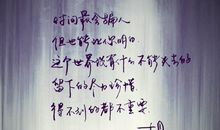 时间最会骗人
但也能让你明白
这个世界没有什么不能失去的
留下的尽力珍惜
得不到的都不重要